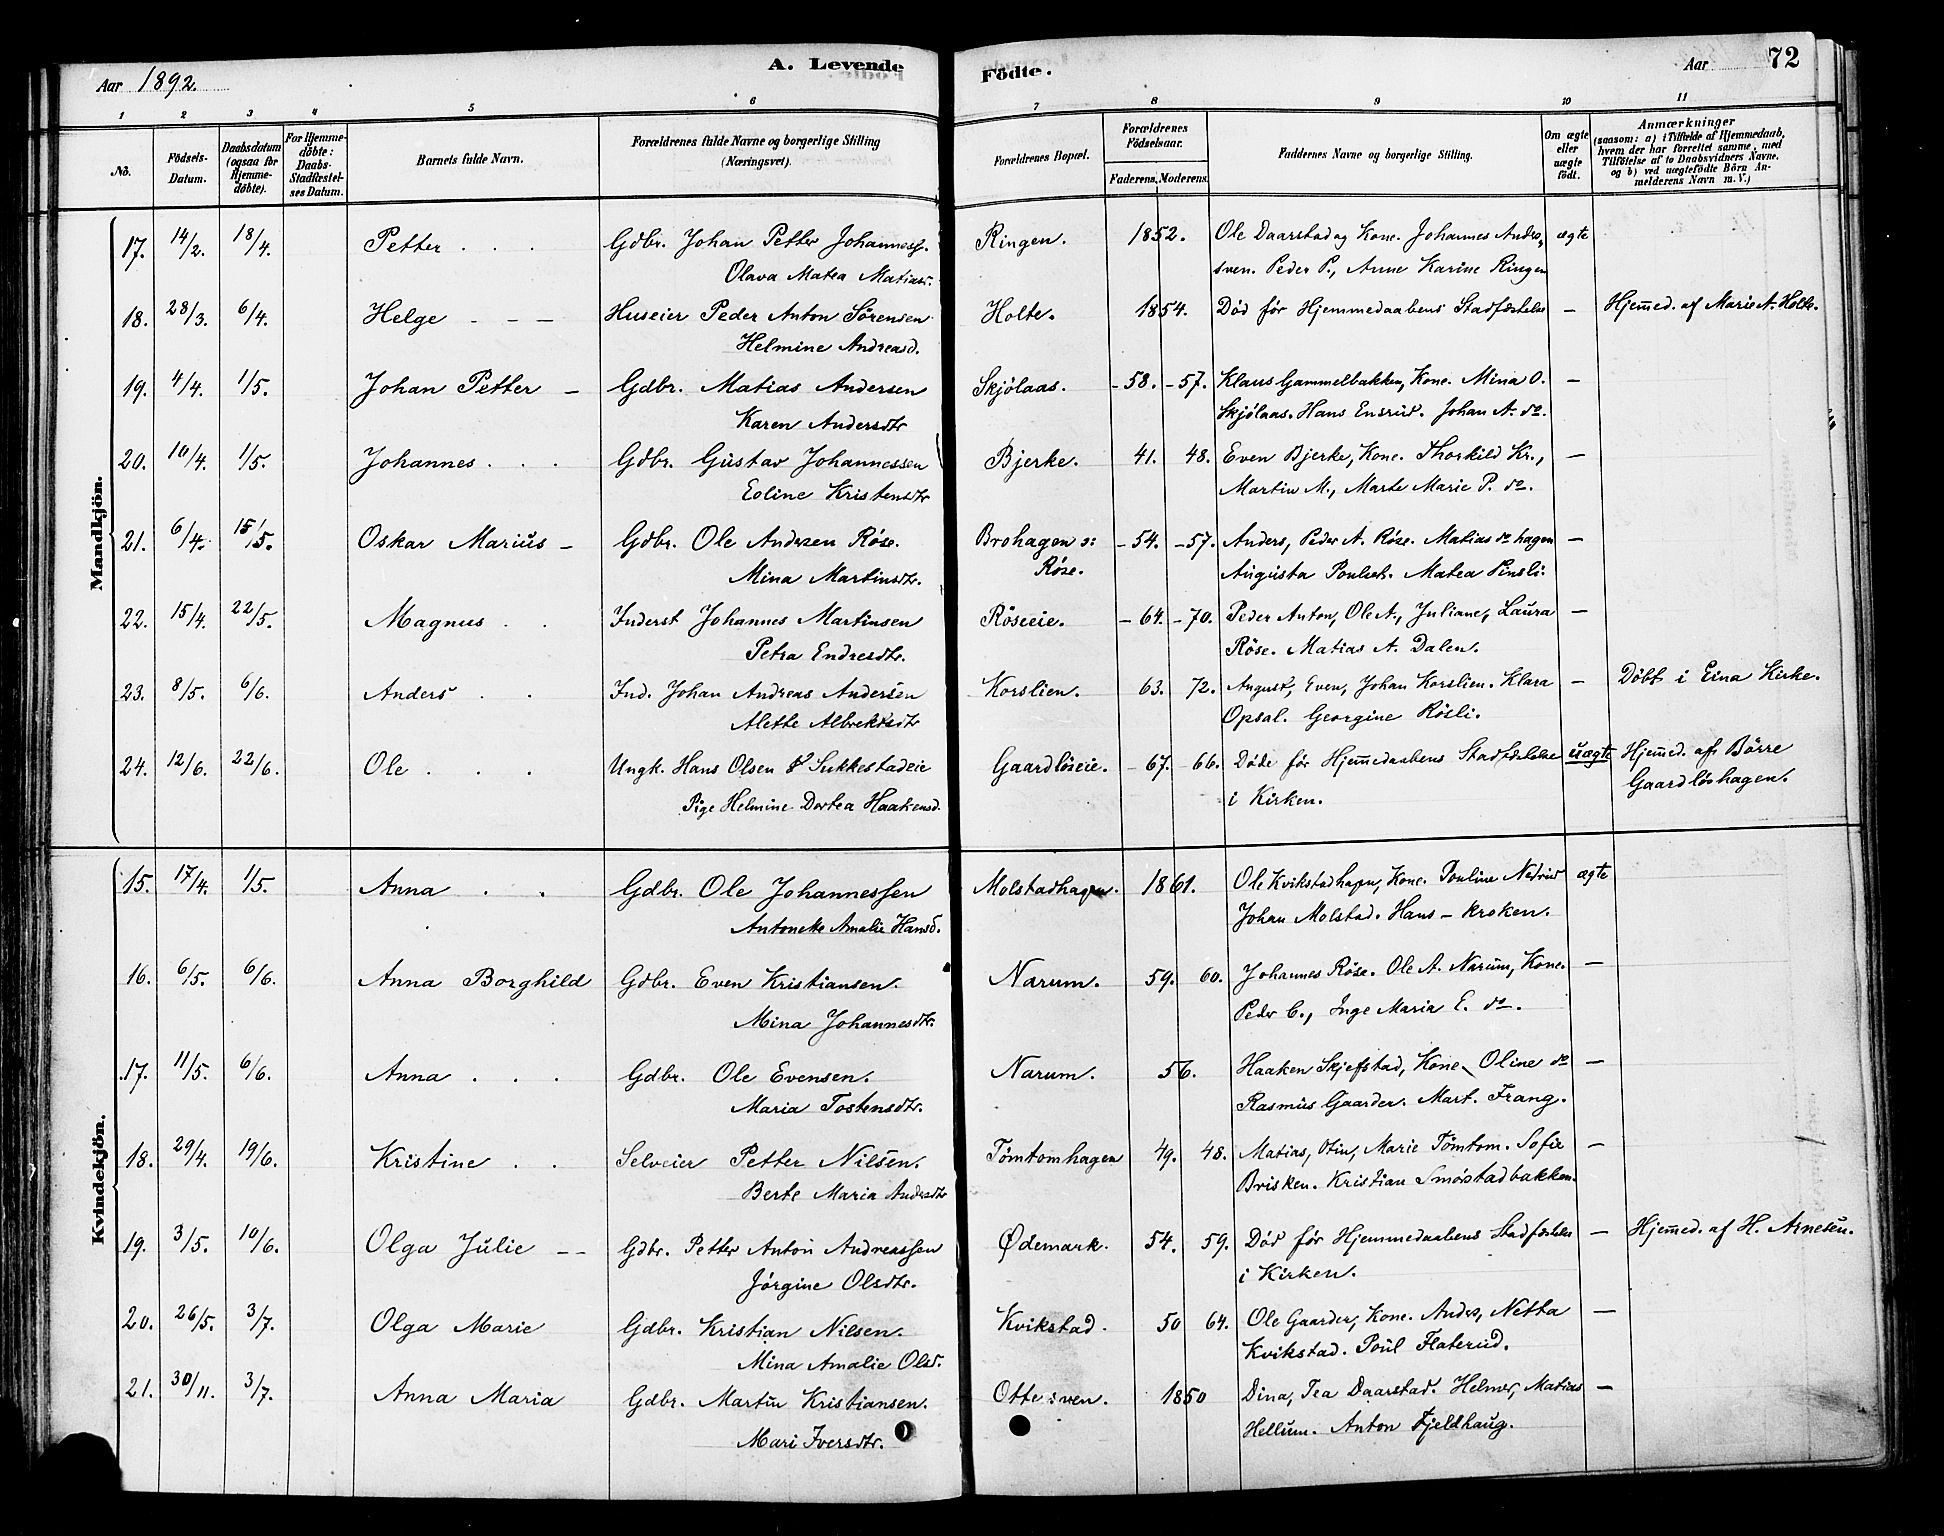 Aar 1892.
A. Levende
Födte.
Aar
72
1 2 3 4 5 6 7 8 9 10 11
No.
Födsels-Datum.
Daabsdatum (ogsaa for Hjemmedöbte).
For Hjemmedöbte: Daabs-Stadfæstelses Datum.
Barnets fulde Navn.
Forældrenes fulde Navne og borgerlige Stilling (Næringsvei).
Forældrenes Bopæl.
Forældrenes Födselsaar.
Faderens. Moderens.
Faddernes Navne og borgerlige Stilling.
Om ægte eller uægte födt.
Anmærkninger
(saasom: a) i Tilfælde af Hjemmedaab, hvem der har forrettet samme, med Tilföielse af to Daabsvidners Navne, og b) ved uægtefödte Börn Anmelderens Navn m.V.)
Mandkjön.
17. 14/2. 18/4. Petter . . . Gdbr. Johan Petter Johanness. Ringen. 1852. Ole Daarstad og Kone. Johannes Andr- ægte
Olava Matea Matiasd. sven. Peder P., Anne Karine Ringen
18. 28/3. 6/4. Helge - - - Huseier Peder Anton Sörensen Holte. 1854. Død før Hjemmedaabens Stadfæstelse — Hjemmed. af Marie A. Holte.
Helmine Andreasd.
19. 4/4. 1/5. Johan Petter - Gdbr. Matias Andersen Skjölaas. -58. -57. Klaus Gammelbakken, Kone. Mina O. —
Karen Andersdtr Skjölaas. Hans Ensrud. Johan A. do.
20. 10/4. 1/5. Johannes . . . Gdbr. Gustav Johannessen Bjerke. 41. 48. Even Bjerke, Kone. Thorkild Kr., —
Eoline Kristensdtr Martin M., Marte Marie P. do.
21. 6/4. 15/5. Oskar Marius - Gdbr. Ole Andersen Røse. Brohagen o: -54. -57. Anders, Peder A. Røse. Matias do hagen —
Mina Martinsdtr. Røse. Augusta Poulset. Matea Pinsli.
22. 15/4. 22/5. Magnus . . Inderst Johannes Martinsen Röseeie. -64. -70. Peder Anton, Ole A., Juliane, Laura —
Petra Endresdtr. Röse. Matias A. Dalen.
23. 8/5. 6/6. Anders . . Ind. Johan Andreas Andersen Korslien. 63. 72. August, Even, Johan Korslien. Klara — Döbt i Eina Kirke.
Alette Albrektsdtr Opsal. Georgine Rösli.
24. 12/6. 22/6. Ole . . . Ungk. Hans Olsen Sukkestadeie Gaardlöseie. -67. -66. Døde før Hjemmedaabens Stadfæstelse uægte Hjemmed. af Börre
Pige Helmine Dortea Haakensd. i Kirken. Gaardlöshagen.
Kvindekjön.
15. 17/4. 1/5. Anna . . Gdbr. Ole Johannessen Molstadhagen. 1861. Ole Kvikstadhagen, Kone. Pouline Nedrud ægte
Antonette Amalie Hansd. Johan Molstad. Hans - kroken.
16. 6/5. 6/6. Anna Borghild Gdbr. Even Kristiansen. Narum. 59. 60. Johannes Røse. Ole A. Narum, Kone. —
Mina Johannesdtr. Peder C., Inge Maria E. do.
17. 11/5. 6/6. Anna . . . Gdbr. Ole Evensen. Narum. 56. Haaken Skjefstad, Kone, Oline do —
Maria Tostensdtr. Rasmus Gaarder. Mart. Frang.
18. 29/4. 19/6. Kristine . . Selveier Petter Nilsen. Tömtomhagen 49. 48. Matias, Otin, Marie Tömtom. Sofie —
Berte Maria Andersdtr Brisken. Kristian Smörstadbakken.
19. 3/5. 10/6. Olga Julie -- Gdbr. Petter Anton Andreassen Ødemark. 54. 59. Død før Hjemmedaabens Stadfæstelse — Hjemmed. af H. Arnesen.
Jörgine Olsdtr. i Kirken.
20. 26/5. 3/7. Olga Marie Gdbr. Kristian Nilsen. Kvikstad. 50 64. Ole Gaarder, Kone. Anders, Netta —
Mina Amalie Olsd. Kvikstad. Poul Flaterud.
21. 30/11. 3/7. Anna Maria Gdbr. Martin Kristiansen. Ottesven. 1850 Dina, Tea Daarstad. Helmer, Matias —
Mari Iversdtr. Hellum. Anton Fjeldhaug.